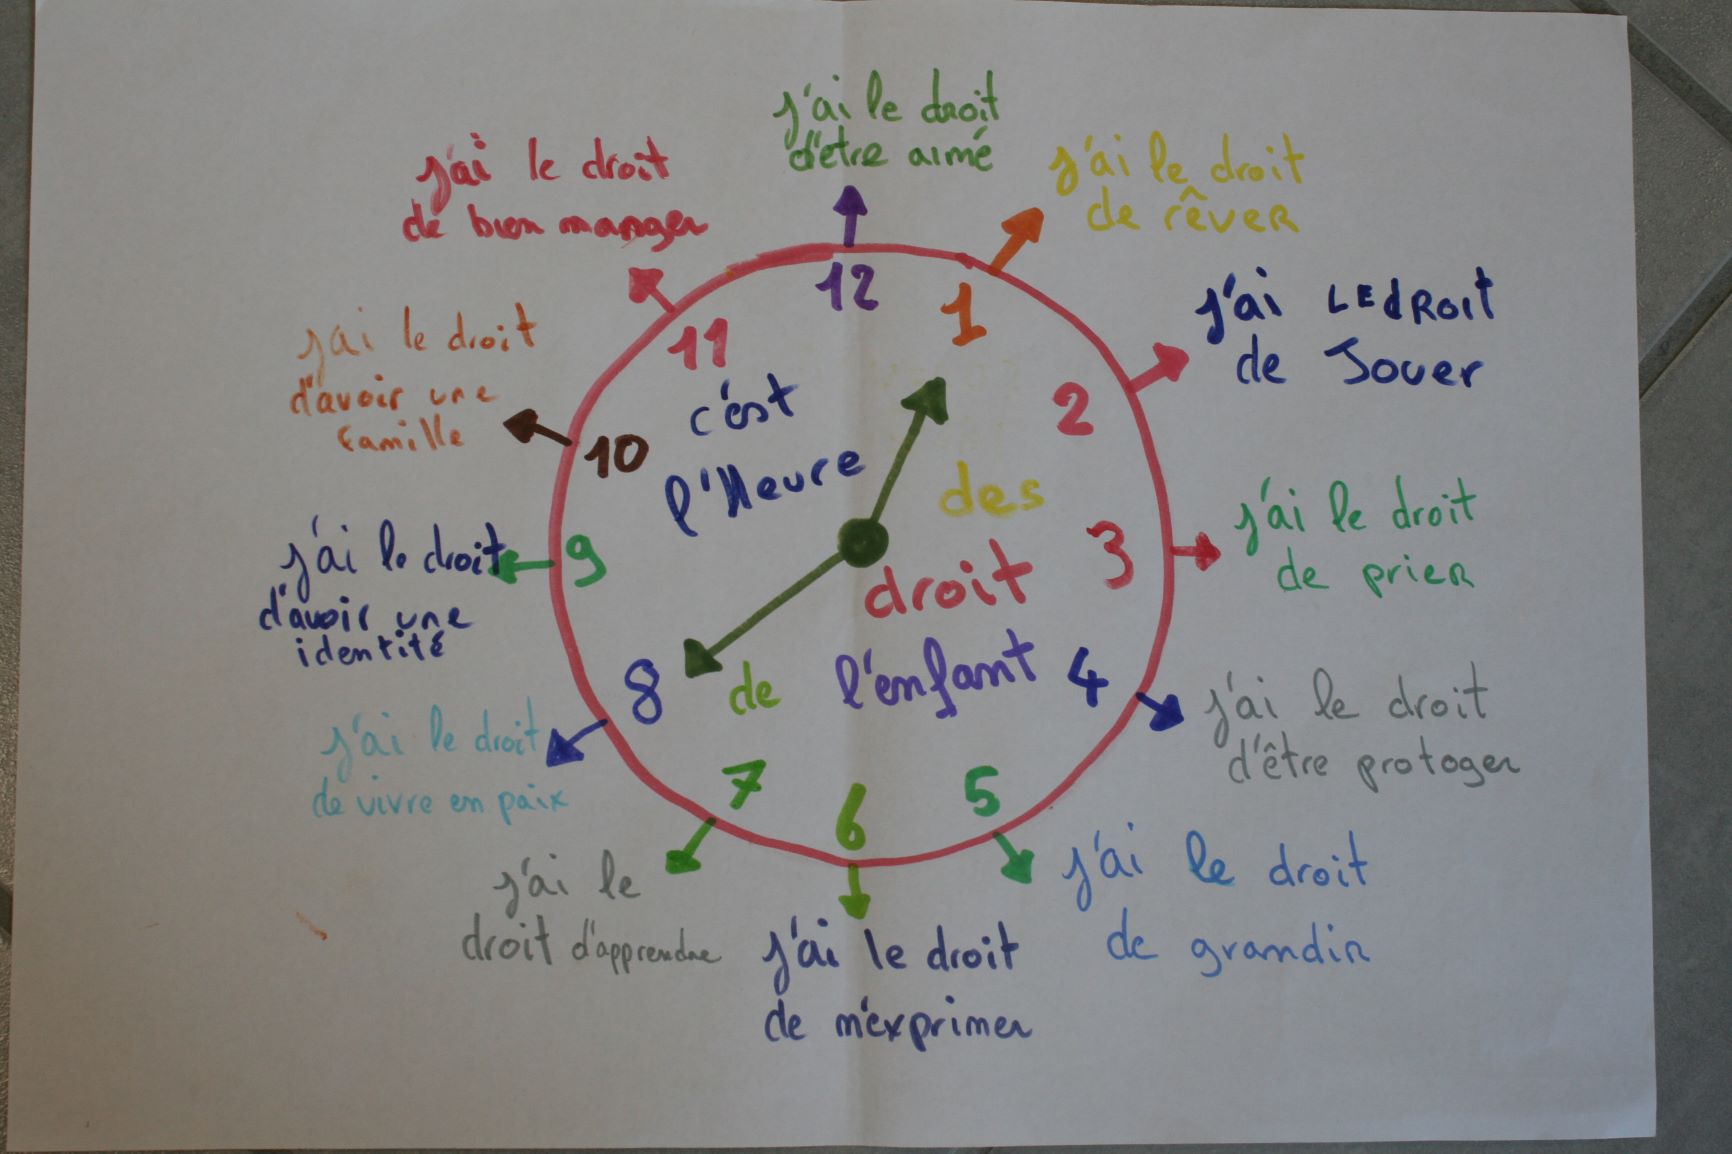 j'ai le droit
d'être aimé
j'ai le droit
de rêver
j'ai LE dROit
de Jouer
j'ai le droit
de prier
j'ai le droit
d'être protoger
j'ai le droit
de grandir
j'ai le droit
de m'exprimer
j'ai le
droit d'apprendre
j'ai le droit
de vivre en paix
j'ai le droit
d'avoir une
identité
j'ai le droit
d'avoir une
famille
j'ai le droit
de bien manger
12
1
2
3
4
5
6
7
8
9
10
11
c'est
l'Heure
des
droit
de l'enfant